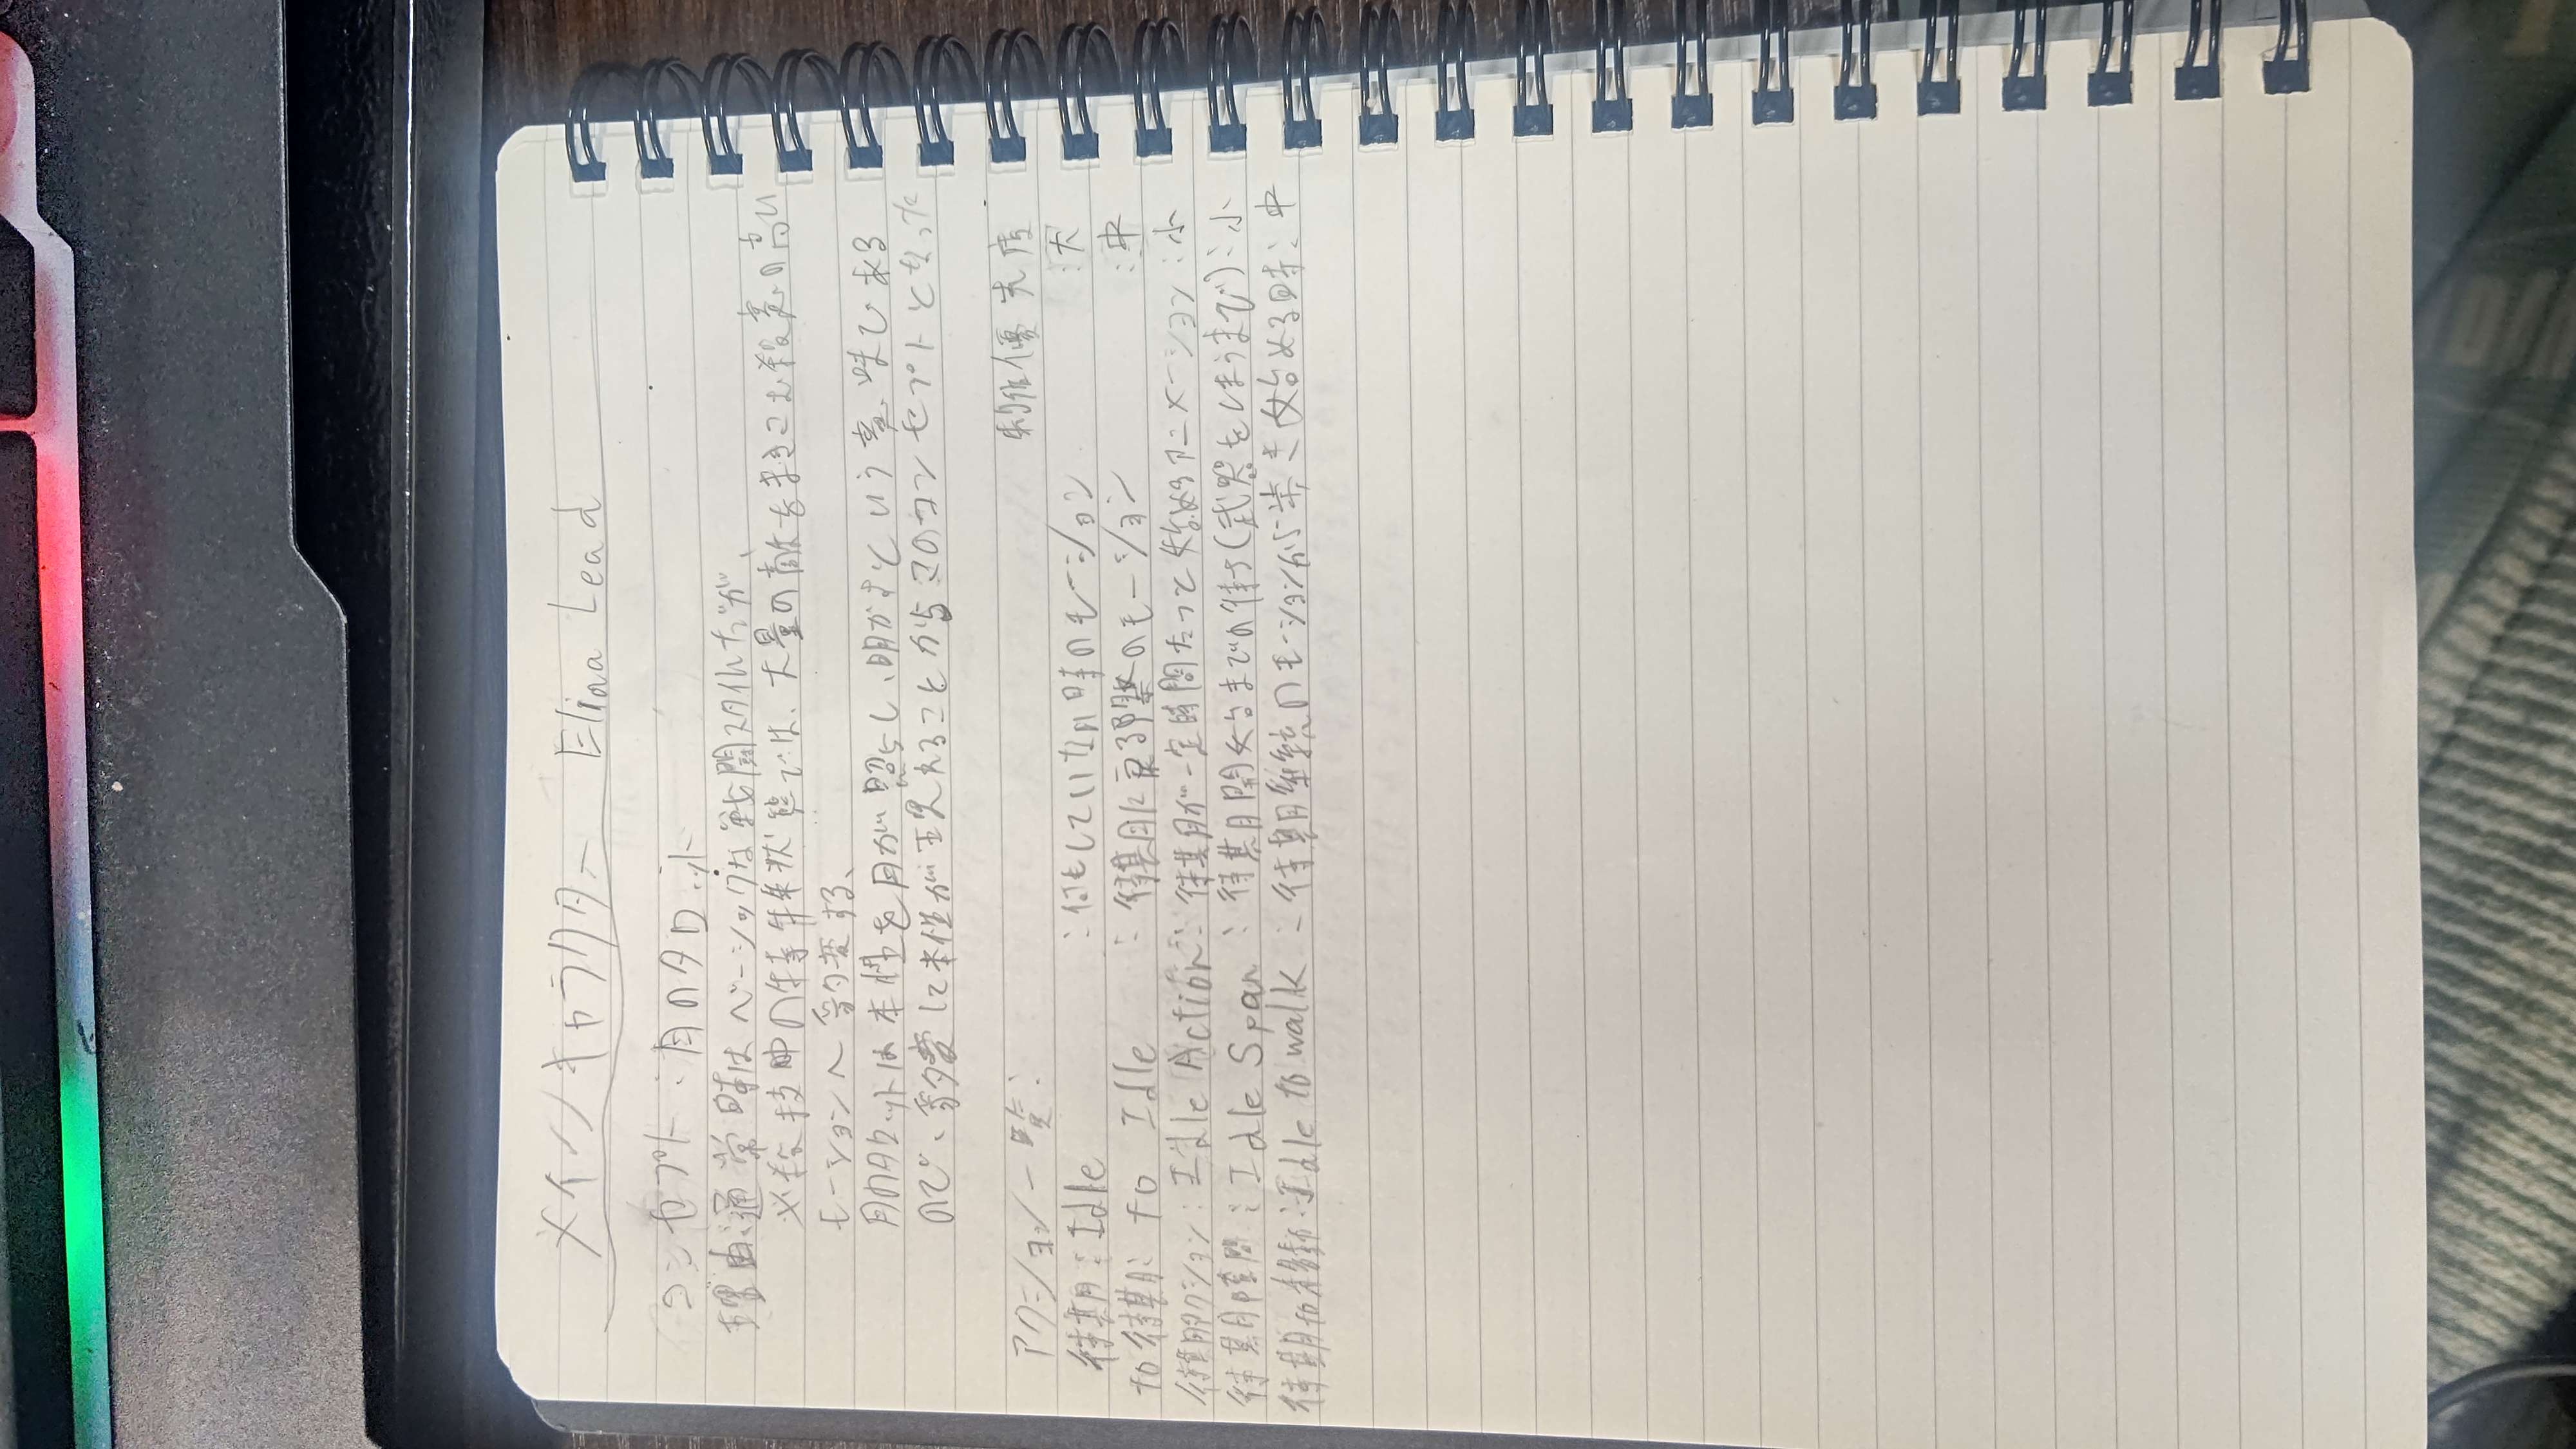 メインキャラクター Elina Lead
コンセプト：月のタロット
理由：通常時はベーシックな戦闘スタイルだが、
必殺技中の特殊状態では、大量の敵をまきこむ殺意の高い
モーションへ豹変する、
月のタロットは本性を月が照らし、明かすという意味である
ので、豹変して本性が現れることからこのコンセプトとなった
アクション一覧： 制作優先度
待期：Idle ：何もしていない時のモーション ：大
to待期：to Idle ：待期に戻る際のモーション ：中
待期アクション：Idle Action：待期が一定時間たつと始めるアニメーション：小
待期時間：Idle Span：待期開始までの待ち(武器をしまうまで)：小
待期to移動：Idle to walk：待期継続のモーションから歩き始める時：中